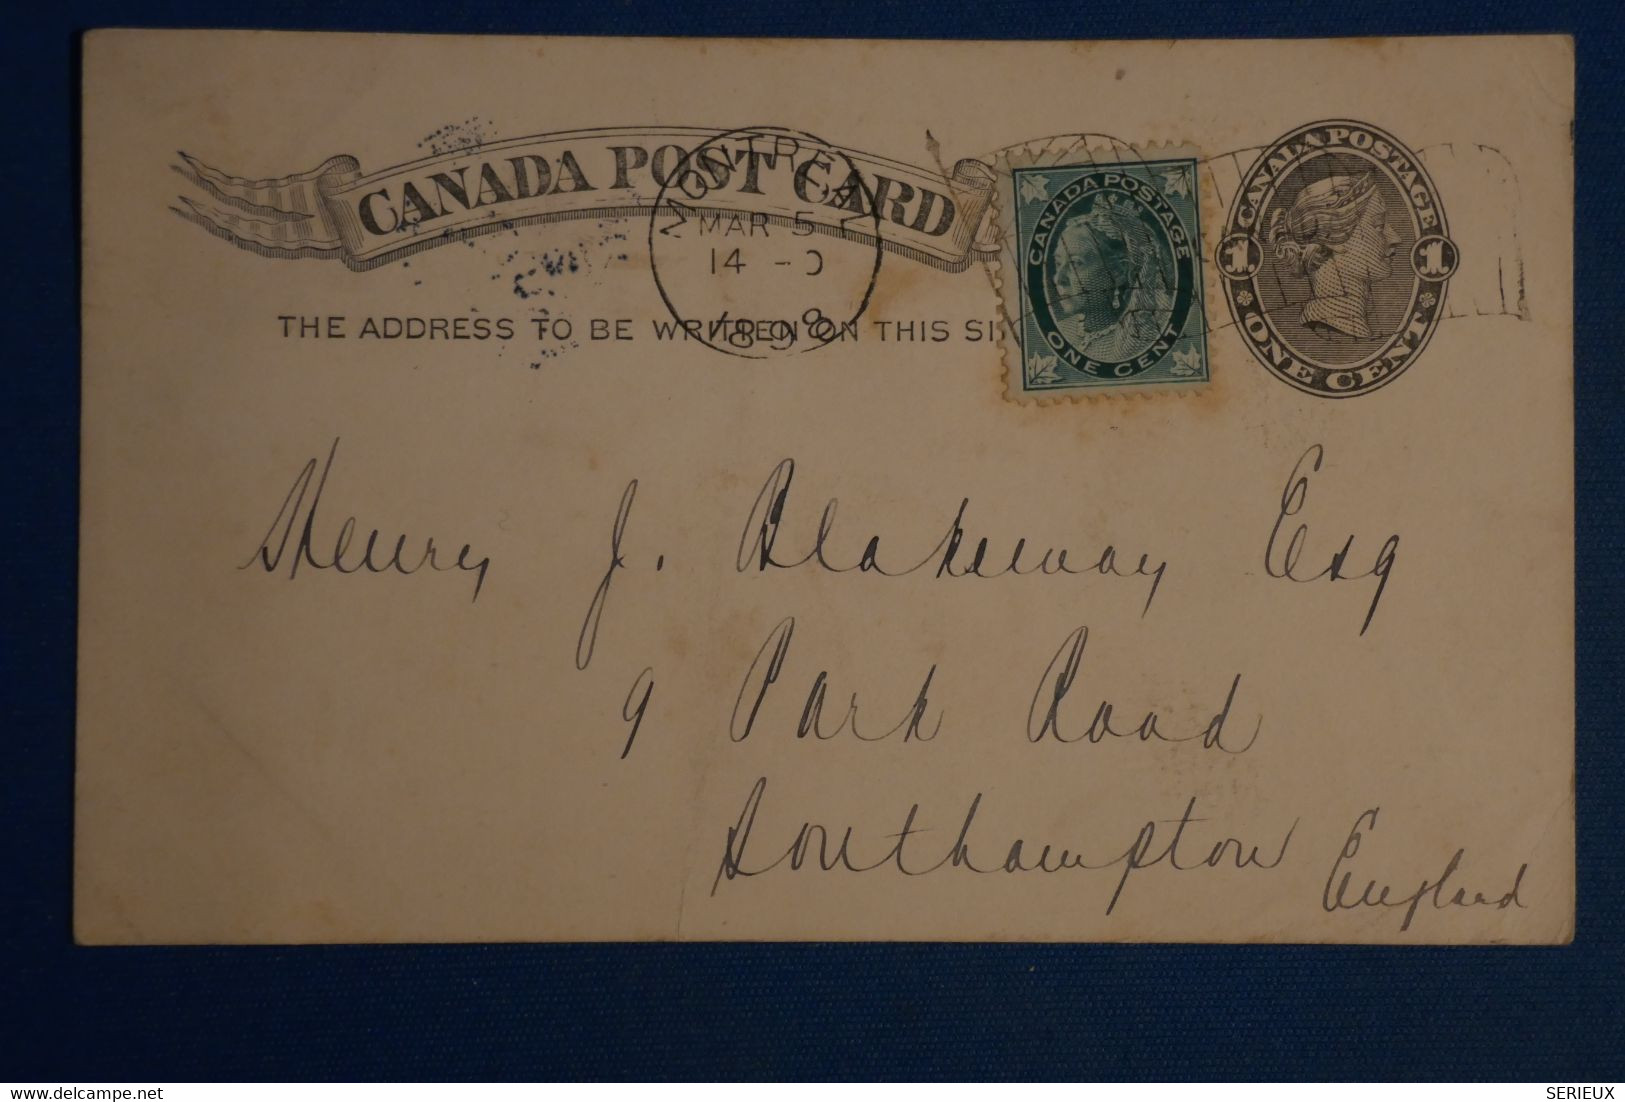 CANADA POST CARD
MONTREAL
MAR 5
14 - 0
1898
CANADA POSTAGE
ONE CENT
CANADA POSTAGE
1 1
ONE CENT
THE ADDRESS TO BE WRITTEN ON THIS SI
Henry J. Blakeway Esq
9 Park Road
Southampton
England
delcampe.net
SERIEUX